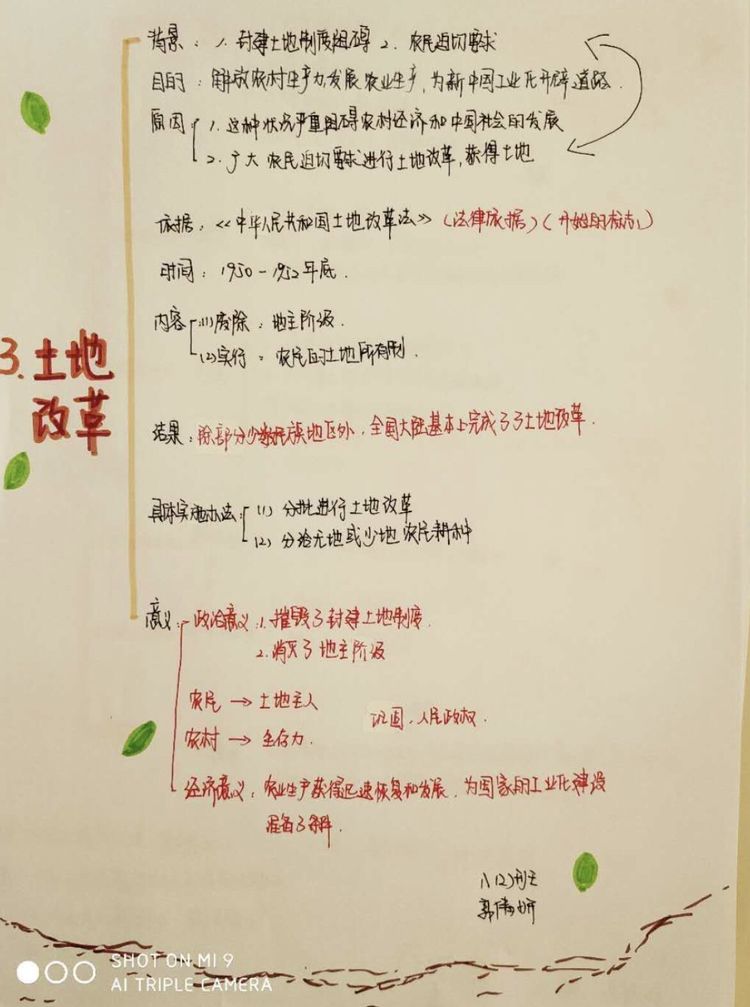 背景：1. 封建土地制度阻碍 2. 农民迫切要求
目的：解放农村生产力，发展农业生产，为新中国工业化开辟道路.
原因 1. 这种状况严重阻碍农村经济和中国社会的发展
2. 广大农民迫切要求进行土地改革，获得土地
依据：《中华人民共和国土地改革法》(法律依据)(开始的标志)
时间：1950-1952年底.
内容 (1)废除：地主阶级.
(2)实行：农民的土地所有制.
3.土地
改革
结果：除部分少数民族地区外，全国大陆基本上完成了土地改革.
具体实施办法：(1) 分批进行土地改革
(2) 分给无地或少地农民耕种
意义：政治意义：1. 摧毁了封建土地制度.
2. 消灭了地主阶级
农民 → 土地主人
巩固，人民政权.
农村 → 生存力.
经济意义：农业生产获得迅速恢复和发展，为国家的工业化建设
准备了条件.
八(2)班
郭倩妍
SHOT ON MI 9
AI TRIPLE CAMERA